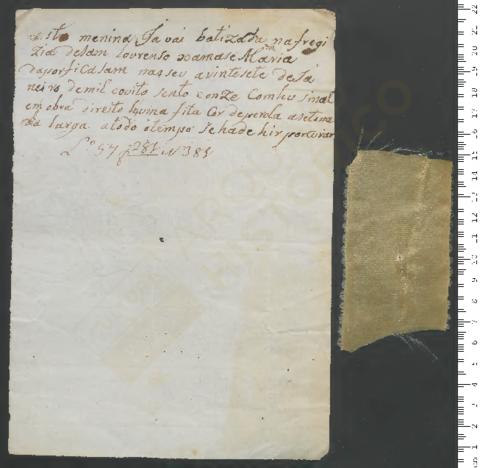 esta menina Já vai batizada na fregi
zia desam lourenso xamase Maria
daporficasam naseu a vinte sete de Ja
neiro demil e ovito sento e onze Com hu sinal
em obra direito huma fita Cor de perola asetina
da larga atodo o tempo Se hade hir percurar
Lº 57 f 281 N 381